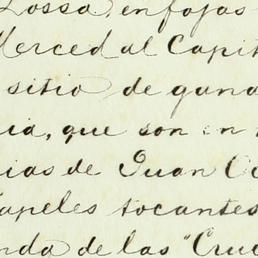 Lossa, en fojas
Merced al Capit
sitio de gana
ia, que son en
ias de Juan Co
Papeles tocantes
nda de las "Cruc